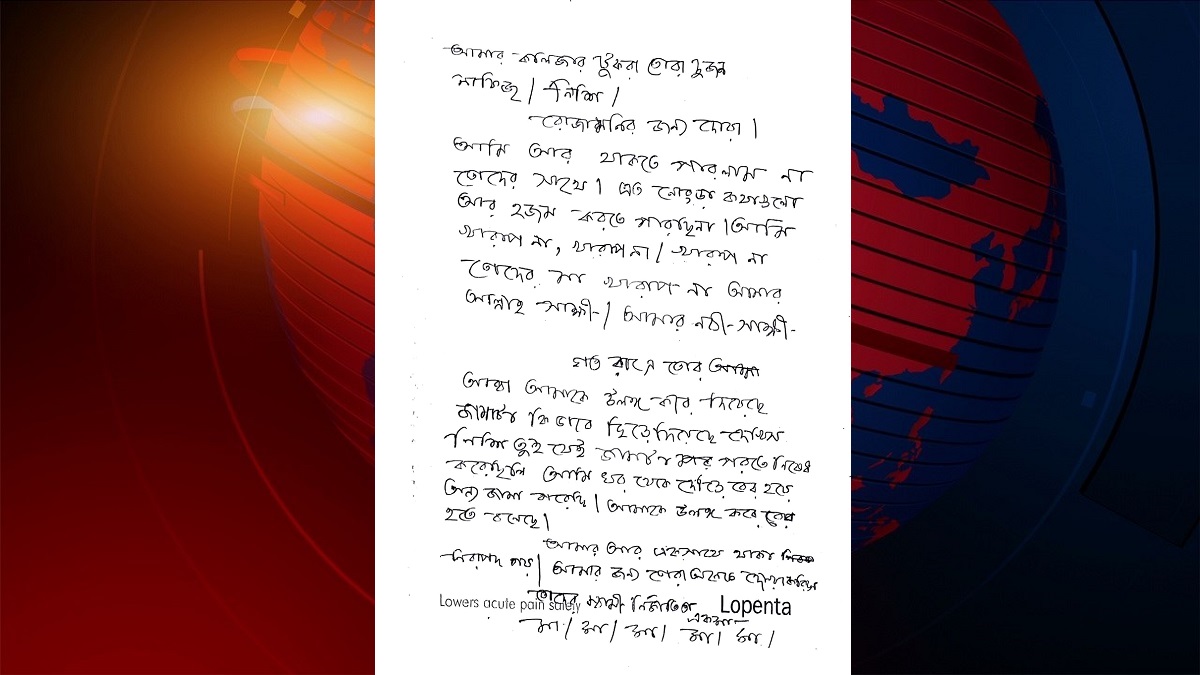 আমার কলিজার টুকরা তোরা দুজন
নাফিজ / নিশি /
রোজামনির জন্য দোয়া ।
আমি আর থাকতে পারলাম না
তোদের সাথে । এত নোংড়া কথাগুলো
আর হজম করতে পারছিনা । আমি
খারাপ না, খারাপ না / খারাপ না
তোদের মা খারাপ না আমার
আল্লাহ সাক্ষী / আমার নবী সাক্ষী
গত রাত্রে তোর আব্বা
আমাকে উলঙ্গ করে দিয়েছে
জামাটা কিভাবে ছিড়ে দিয়েছে দেখিস
নিশি তুই যেই জামাটা পরতে নিষেধ
করেছিলি আমি ঘর থেকে দৌড়ে বের হয়ে
অন্য জামা পরেছি । আমাকে উলঙ্গ করে বের
হতে বলেছে ।
আমার আর একসাথে থাকা
নিরাপদ নয় | আমার জন্য তোরা
তোদের নির্জাতিত
একমা
Lowers acute pain safely Lopenta
মা / মা / মা / মা / মা /